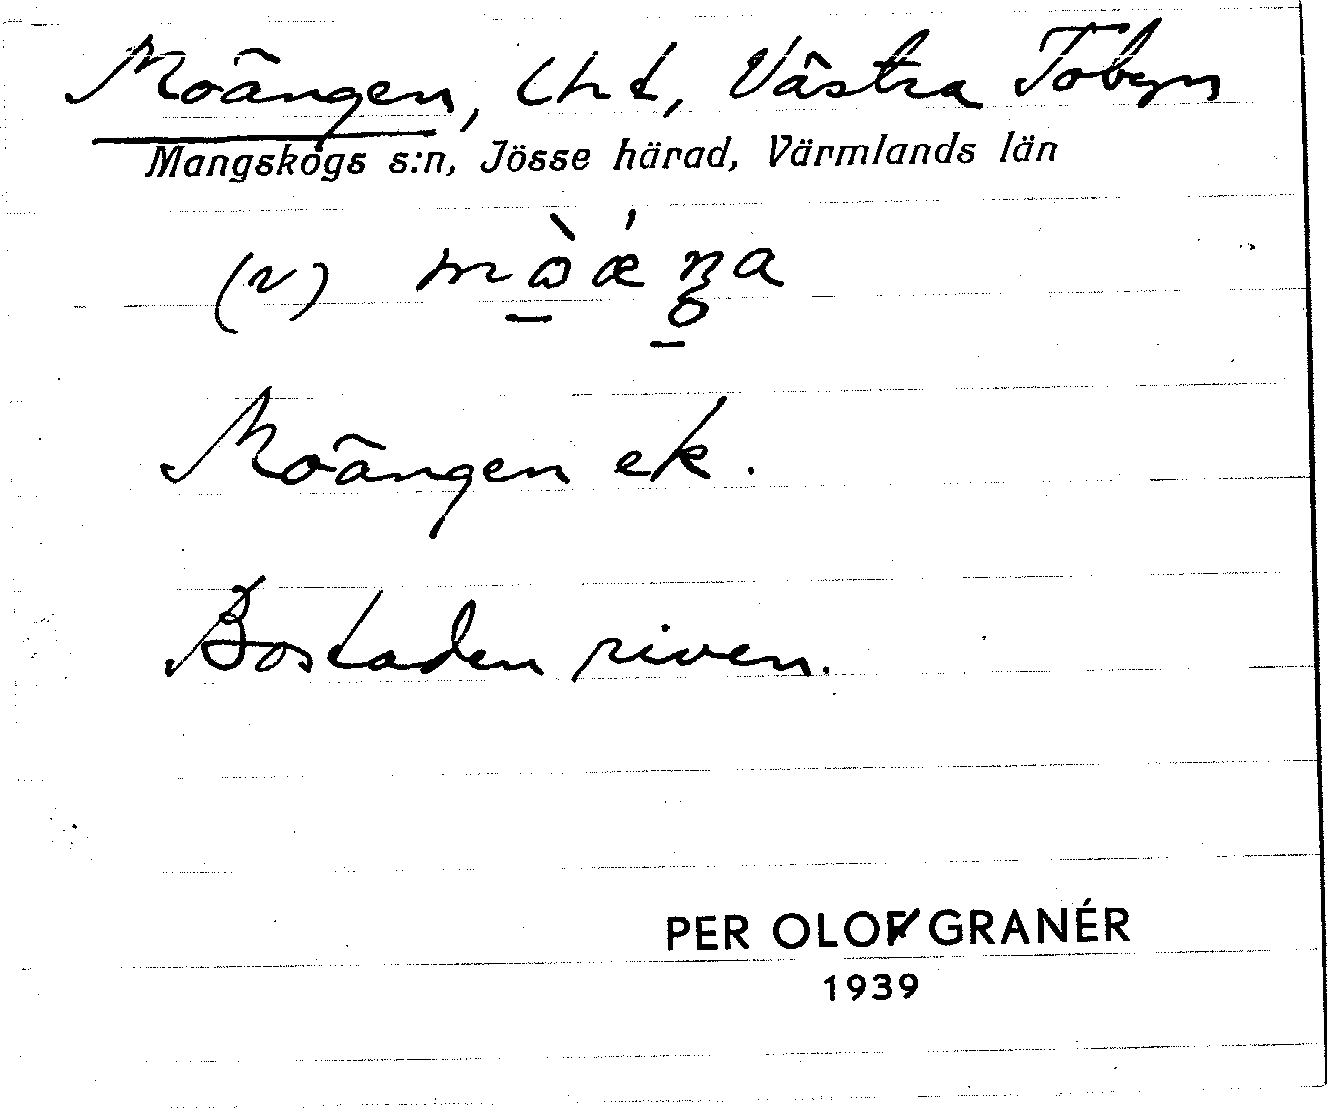 Moängen, lht, Västra Tobyn
Mangskogs s:n, Jösse härad, Värmlands län
(v)
Moängen ek.
Bostaden riven.
PER OLOF GRANÉR
1939